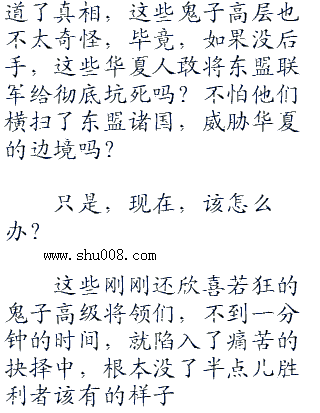 道了真相，这些鬼子高层也
不太奇怪，毕竟，如果没后
手，这些华夏人敢将东盟联
军给彻底坑死吗？不怕他们
横扫了东盟诸国，威胁华夏
的边境吗？
只是，现在，该怎么
办？
www.shu008.com
这些刚刚还欣喜若狂的
鬼子高级将领们，不到一分
钟的时间，就陷入了痛苦的
抉择中，根本没了半点儿胜
利者该有的样子